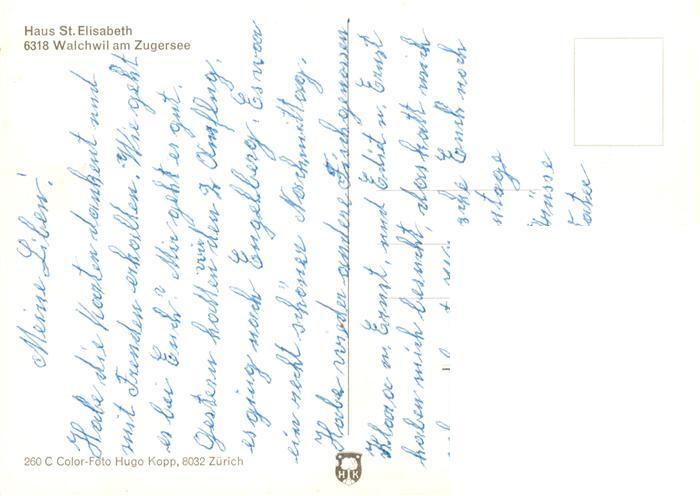 Haus St. Elisabeth
6318 Walchwil am Zugersee
Meine Liben!
Habe die Karten dankent und
mit Freuden erhalten. Wie geht
es bei Euch? Mir geht es gut.
Gestern hatten wir den 2 Ausflug,
es ging nach Engelberg. Es war
ein recht schöner Nachmittag.
Habe wieder andere Tischgenossen
Klara u. Ernst, und Edit u. Ernst
haben mich besucht, das hatt mich
Euch noch
ntage
Grüsse
260 C Color-Foto Hugo Kopp, 8032 Zürich
HK